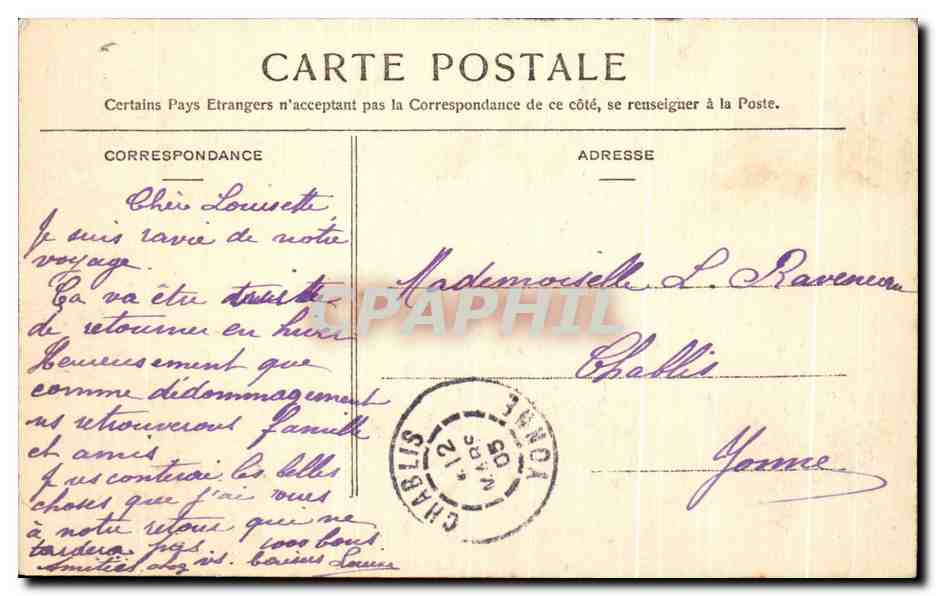 CARTE POSTALE
Certains Pays Etrangers n'acceptant pas la Correspondance de ce côté, se renseigner à la Poste.
CORRESPONDANCE
Chère Louisette
Je suis ravie de notre
voyage.
Ça va être triste
de retourner en hiver
Heureusement que
comme dédommagement
ns retrouverons famille
et amis
Je vs conterai les belles
choses que j'ai vues
à notre retour qui ne
tardera pas 1000 bons
Amitiés chez vs. baisers Louise
ADRESSE
Mademoiselle L. Raveneau
Chablis
Yonne
CHABLIS YONNE
12
MARS
05
CPAPHIL